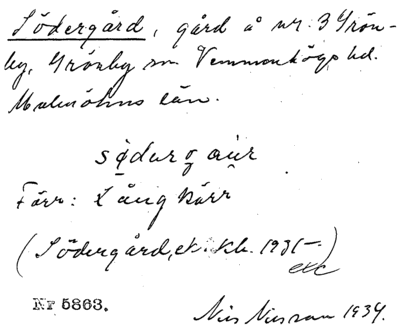 Södergård, gård å nr. 3 Grön-
by, Grönby sn Vemmenhögs hd.
Malmöhus län.
Förr: Långkärr
(Södergård, ek. kb. 1931–
etc)
Nr 5863.
Nils Nilsson 1934.